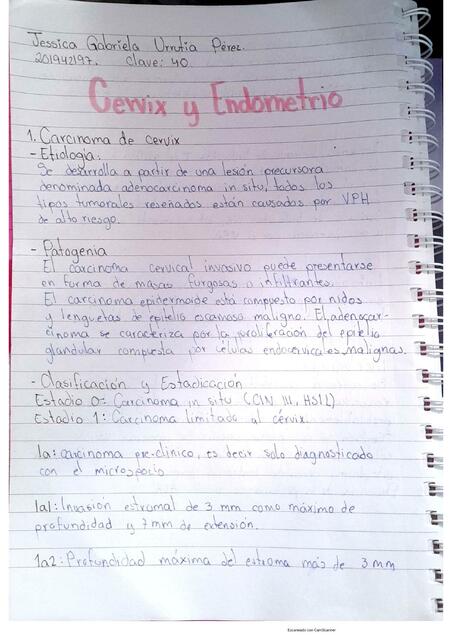 Jessica Gabriela Urrutia Pérez.
201942197. Clave: 40
Cervix y Endometrio
1. Carcinoma de cervix
- Etiología:
Se desarrolla a partir de una lesión precursora
denominada adenocarcinoma in situ, todos los
tipos tumorales reseñados están causados por VPH
de alto riesgo.
- Patogenia
El carcinoma cervical invasivo puede presentarse
en forma de masas fungosas o infiltrantes.
El carcinoma epidermoide está compuesto por nidos
y lenguetas de epitelio escamoso maligno. El adenocar-
cinoma se caracteriza por la proliferación del epitelio
glandular compuesta por células endocervicales malignas.
- Clasificación y Estadicación
Estadio 0= Carcinoma in situ (CIN III, HSIL)
Estadio 1: Carcinoma limitado al cérvix.
1a: carcinoma pre-clínico, es decir solo diagnosticado
con el microscopio
1a1: Invasión estromal de 3 mm como máximo de
profundidad y 7 mm de extensión.
1a2: Profundidad máxima del estroma más de 3 mm
Escaneado con CamScanner